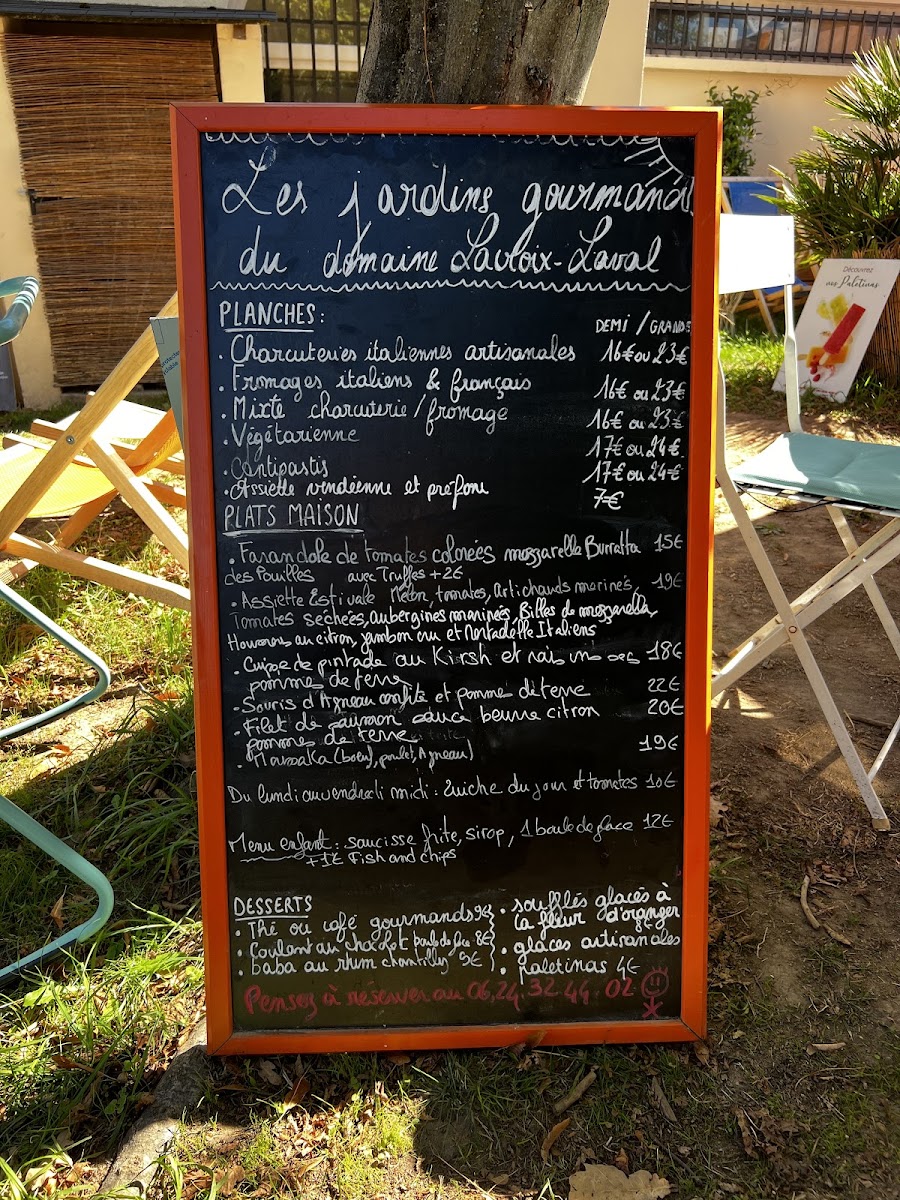 Les jardins gourmands
du domaine Lavloix-Laval
PLANCHES :
DEMI / GRANDE
. Charcuteries italiennes artisanales 16€ ou 23€
. Fromages italiens & français 16€ ou 23€
. Mixte charcuterie / fromage 16€ ou 23€
. Végétarienne 17€ ou 24€
. antipastis 17€ ou 24€
. Assiette vendéenne et préfou 7€
PLATS MAISON
. Farandole de tomates colorées mozzarelle Burratta 15€
des Pouilles avec Truffes +2€
. Assiette Estivale Melon, tomates, Artichauds marinés, 19€
Tomates séchées, aubergines marinés, Billes de mozzarella,
Houmous au citron, jambon cru et Mortadelle Italiens
. Cuisse de pintade au Kirsh et raisins secs 18€
pommes de terre
. Souris d'Agneau confite et pommes de terre 22€
. Filet de saumon sauce beurre citron 20€
pommes de terre
. Moussaka (boeuf, poulet, Agneau) 19€
Du lundi au vendredi midi : Quiche du jour et tomates 10€
Menu enfant : saucisse frite, sirop, 1 boule de glace 12€
+1€ Fish and chips
DESSERTS
. Thé ou café gourmands 9€
. Coulant au chocolat boule de glace 8€
. baba au rhum chantilly 9€
. soufflés glacés à
la fleur d'oranger
8€
. glaces artisanales
. paletinas 4€
Pensez à réserver au 06.24.32.44.02
Découvrez
nos Paletinas